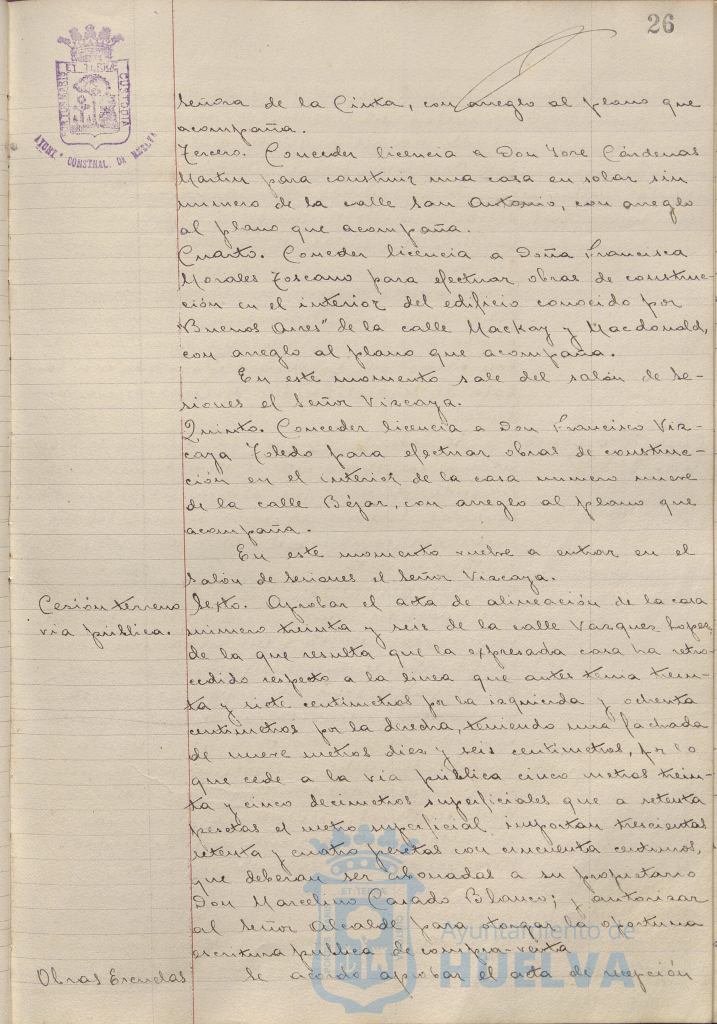 26
PORTUS MARIS ET TERRÆ CUSTODIA
AYUNT. CONSTNAL. DE HUELVA
Señora de la Cinta, con arreglo al plano que
acompaña.
Tercero. Conceder licencia a Don José Cárdenas
Martin para construir una casa en solar sin
numero de la calle San Antonio, con arreglo
al plano que acompaña.
Cuarto. Conceder licencia a Doña Francisca
Morales Toscano para efectuar obras de construc-
ción en el interior del edificio conocido por
"Buenos Aires" de la calle Mackay y Macdonald,
con arreglo al plano que acompaña.
En este momento sale del salón de se-
siones el Señor Vizcaya.
Quinto. Conceder licencia a Don Francisco Viz-
caya Toledo para efectuar obras de construc-
ción en el interior de la casa numero nueve
de la calle Béjar, con arreglo al plano que
acompaña.
En este momento vuelve a entrar en el
Salón de Sesiones el Señor Vizcaya.
Cesión terreno
via pública.
Sexto. Aprobar el acta de alineación de la casa
número treinta y seis de la calle Vazquez Lopez,
de la que resulta que la expresada casa ha retro-
cedido respecto a la linea que antes tenia trein-
ta y siete centimetros por la izquierda y ochenta
centimetros por la derecha, teniendo una fachada
de nueve metros diez y seis centimetros, por lo
que cede a la via pública cinco metros trein-
ta y cinco decimetros superficiales que a setenta
pesetas el metro superficial importan trescientas
setenta y cuatro pesetas con cincuenta centimos,
que deberan ser abonadas a su propietario
Don Marcelino Casado Blanco; y autorizar
al Señor Alcalde para otorgar la oportuna
escritura pública de compra-venta.
Obras Escuelas
Se acordó aprobar el acta de recepción
Ayuntamiento de
HUELVA